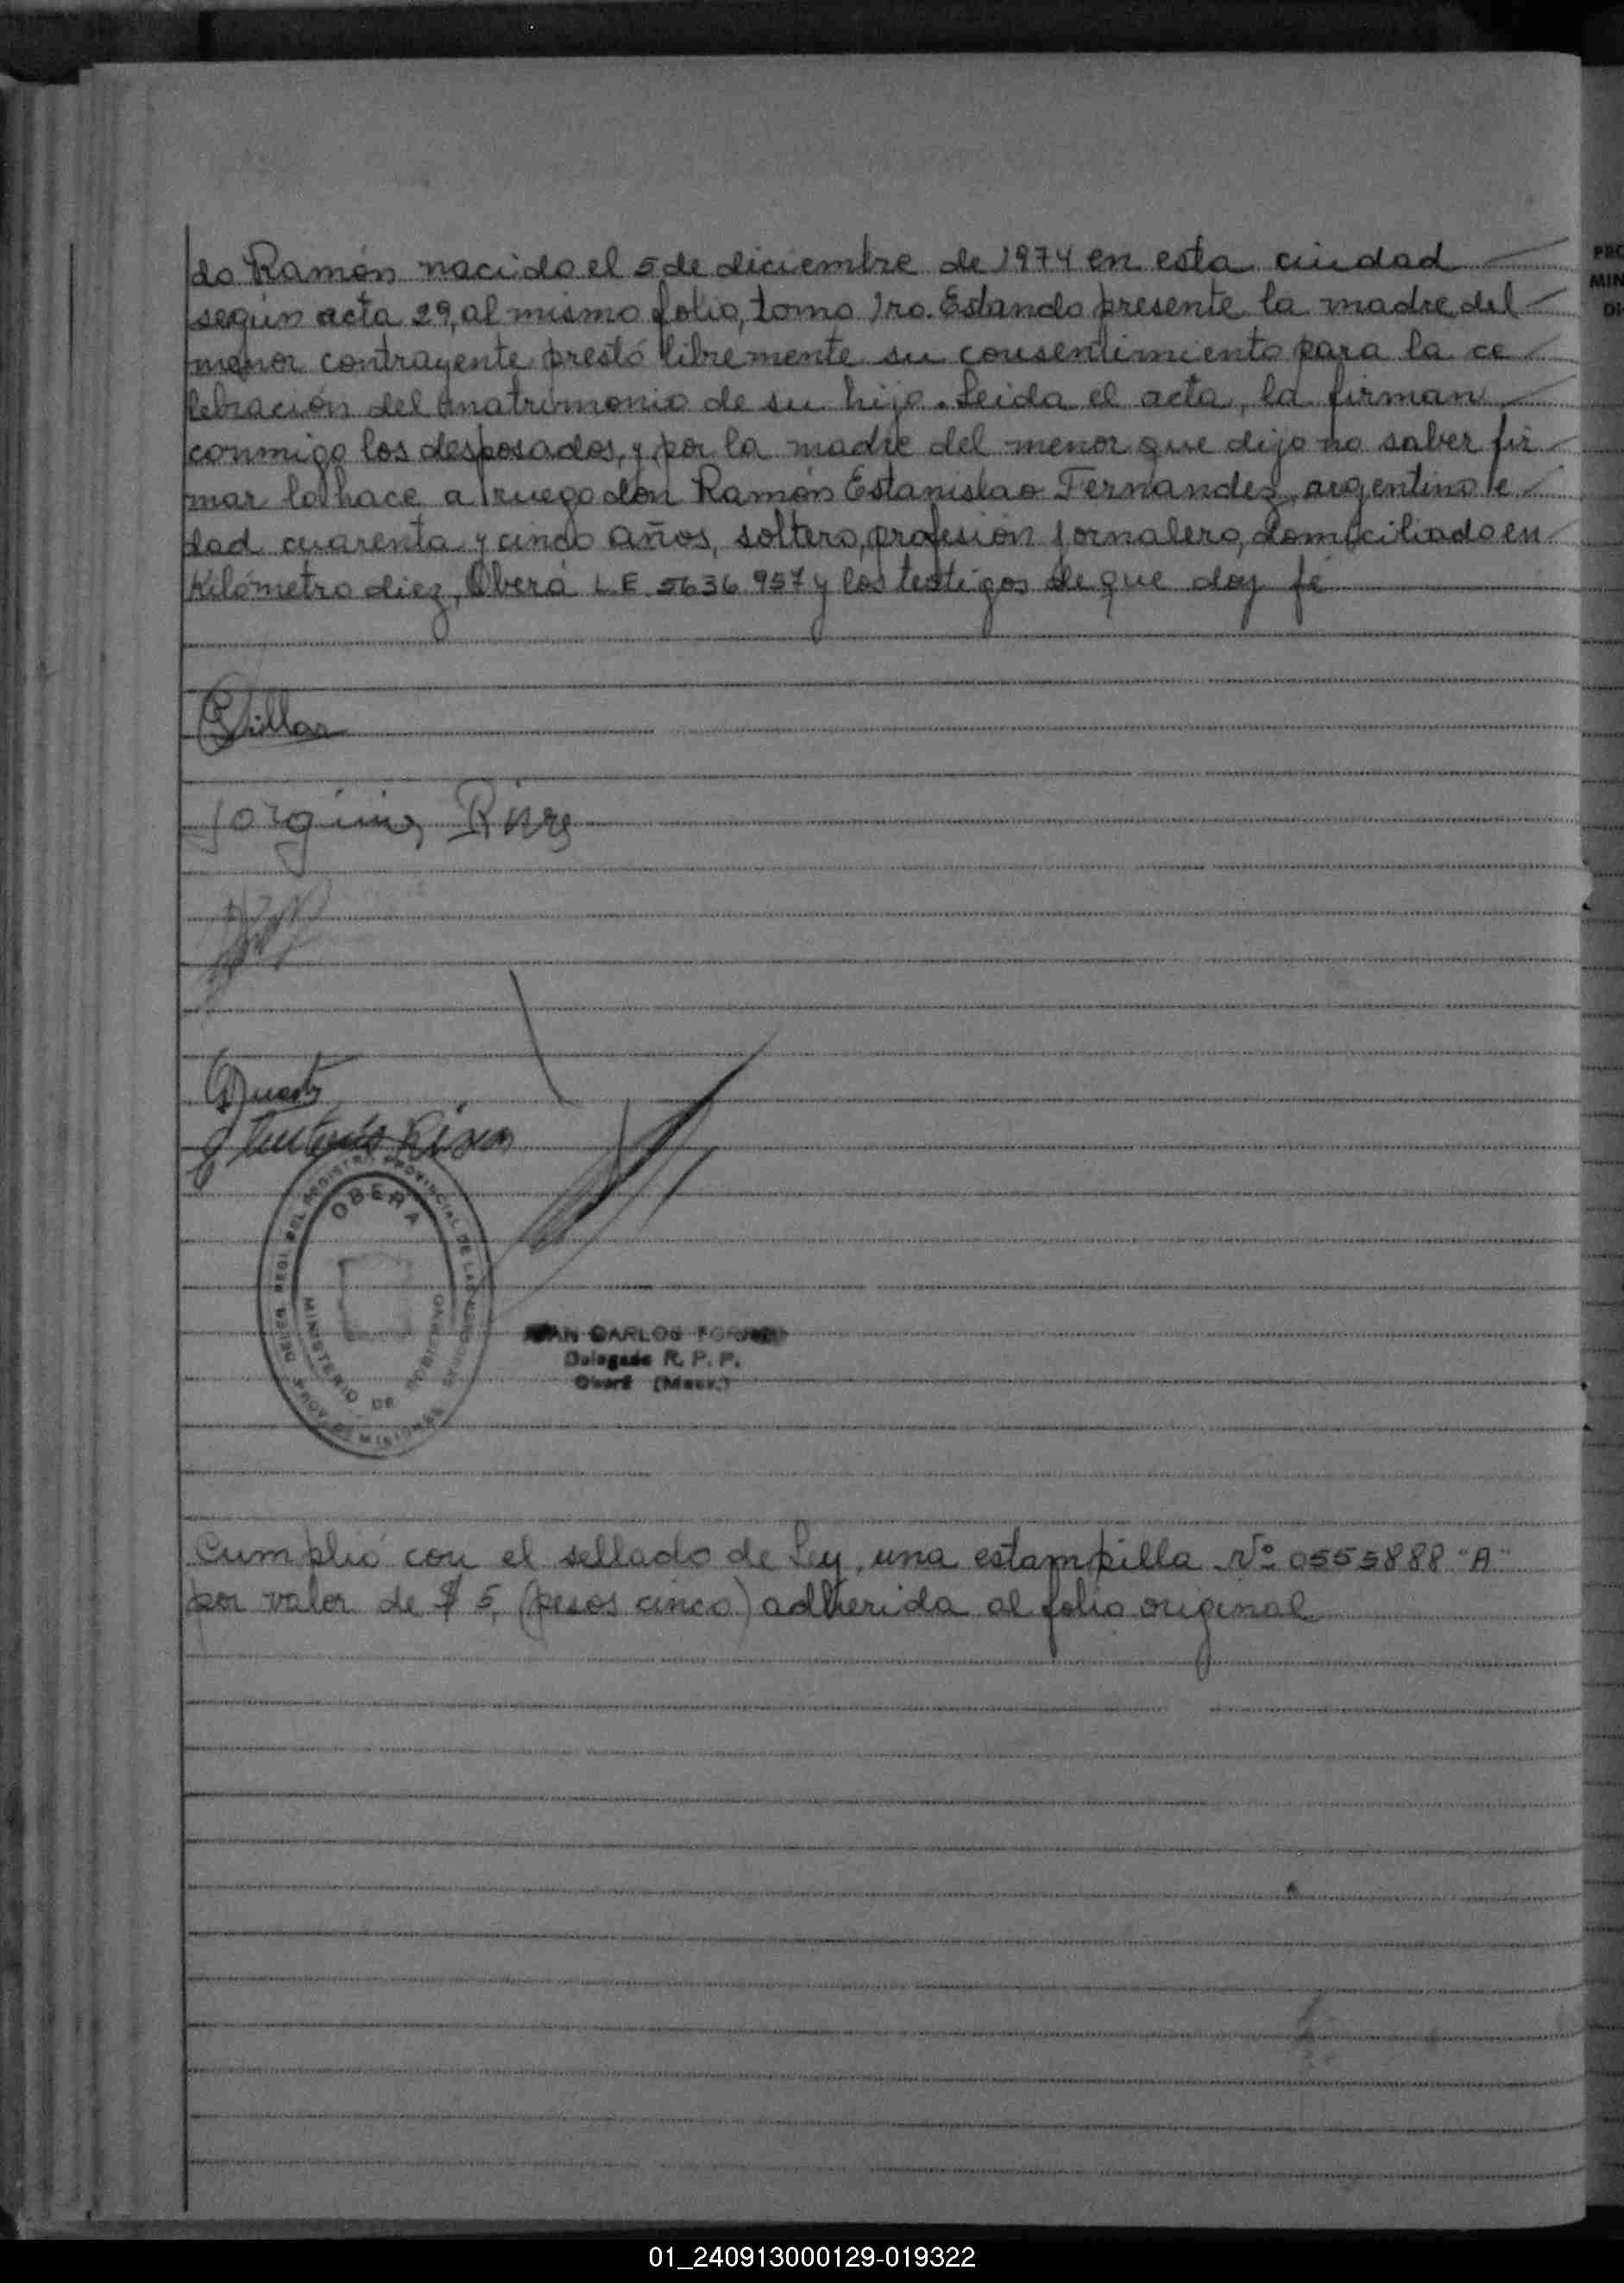 do Ramón nacido el 5 de diciembre de 1974 en esta ciudad
según acta 29, al mismo folio, tomo 1ro. Estando presente la madre del
menor contrayente prestó libremente su consentimiento para la ce
lebración del matrimonio de su hijo. Leida el acta, la firman
conmigo los desposados, y por la madre del menor que dijo no saber fir
mar lo hace a ruego don Ramón Estanislao Fernandez, argentino e
dad cuarenta y cinco años, soltero, profesión jornalero, domiciliado en
Kilómetro diez, Oberá L.E. 5636957 y los testigos de que doy fé
OBERA
MINISTERIO DE GOBIERNO
PROV. DE MISIONES
CARLOS
Delegado R. P. P.
Oberá
Cumplió con el sellado de Ley, una estampilla Nº 0555888 "A"
por valor de $ 5, (pesos cinco) adherida al folio original
PRO
MIN
DI
01_240913000129-019322